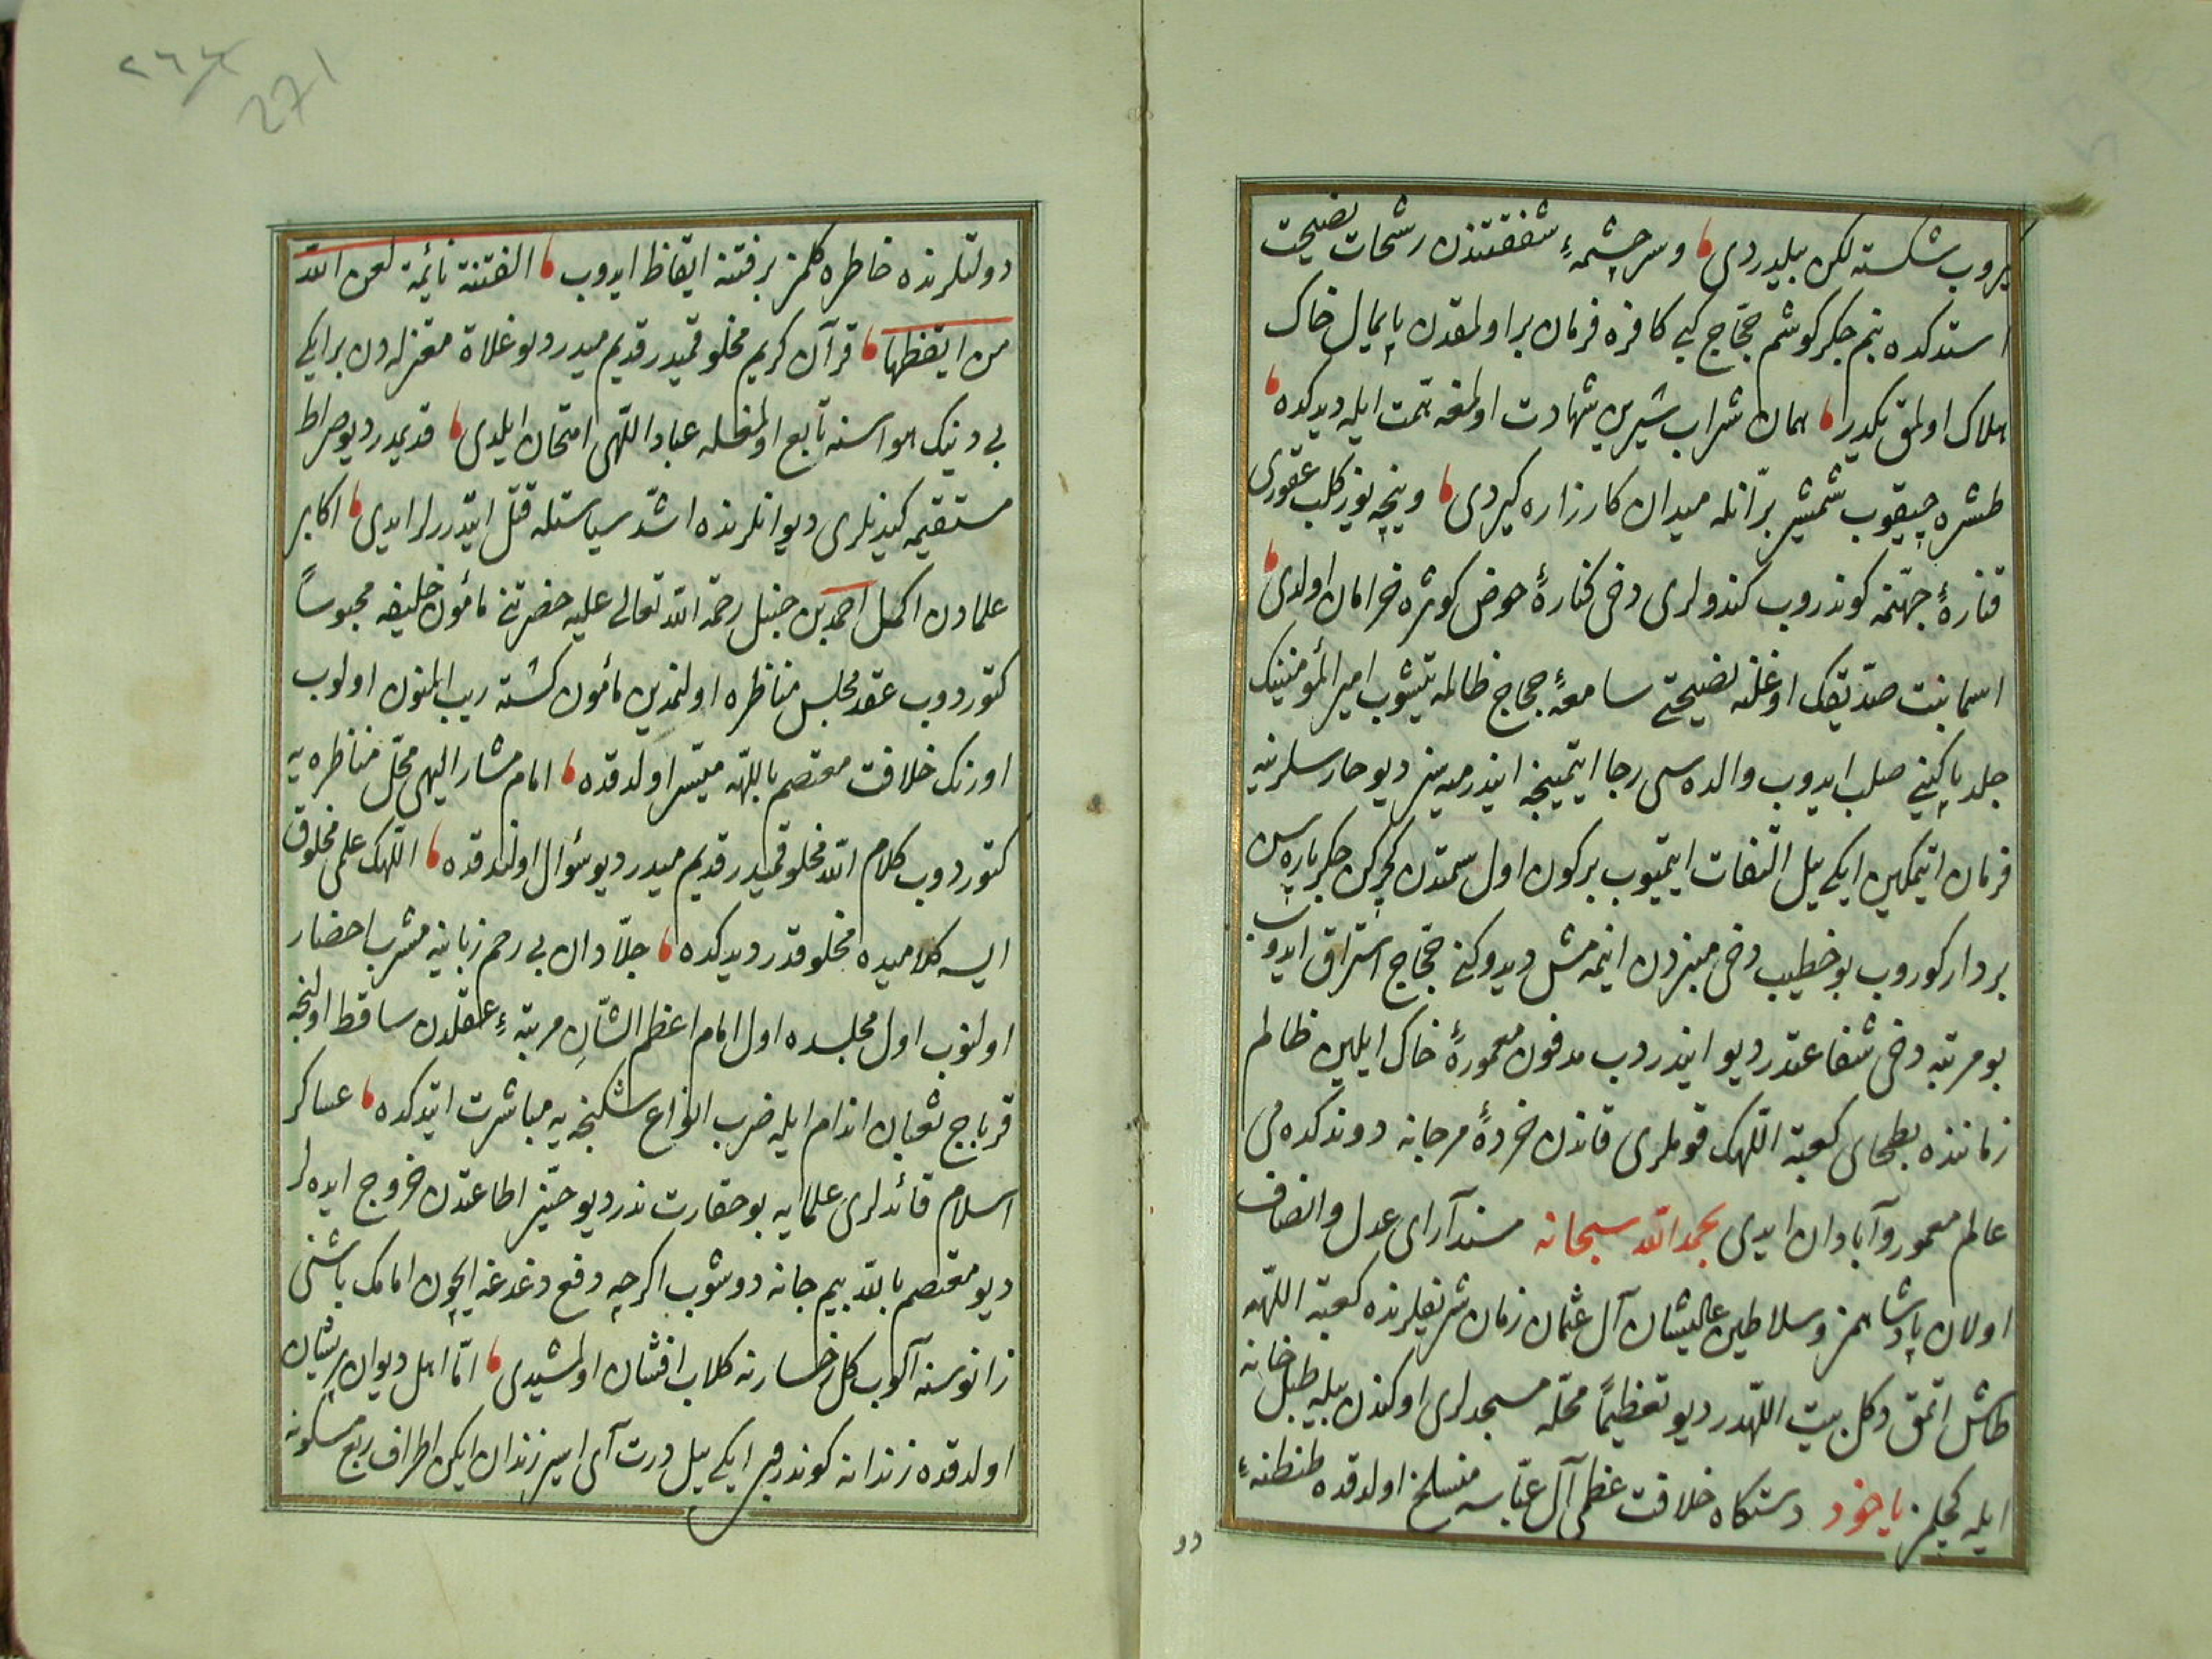 یروب شکسته لکن بیلدردی وسرچشمهٔ شفقتندن رشحات نصیحت
استدکده بنم جکر کوشم حجاج کبی کافره فرمان بر اولمقدن پایمال خاک
هلاک اولمق یکدر همان شراب شیرین شهادت اولمغه همت ایله دیدکده
طشره چیقوب شمشیر برّانله میدان کارزاره کیردی ونیچه یوز کلب عقوری
قنارهٔ جهنمه کوندروب کندولری دخی کنارهٔ حوض کوثره خرامان اولدی
اسما بنت صدیقک اوغلنه نصیحتی سامعهٔ حجاج ظالمه یتیشوب امیر المؤمنینک
جلد پاکینی صلب ایدوب والده سی رجا ایتمینجه ایندرمیسز دیو حارسلرینه
فرمان اتمکین ایکی ییل التفات ایتمیوب برکون اول سمتدن کچرکن جکرپاره سین
بردار کوروب بو خطیب دخی منبردن اینمه مش دیدوکنی حجاج استراق ایدوب
بو مرتبه دخی شفاعتدر دیو ایندروب مدفون معمورهٔ خاک ایلین ظالم
زماننده بطحای کعبة اللهک قوملری قاندن خردهٔ مرجانه دوندکده می
عالم معمور وآبادان ایدی بحمد الله سبحانه مسندآرای عدل وانصاف
اولان پادشاهمز وسلاطین عالیشان آل عثمان زمان شریفلرنده کعبة اللهه
طاش اتمق دکل بیت اللهدر دیو تعظیماً محله مسجدلری اوکندن بیله طبل خانه
ایله کچلمز یاخود دستکاه خلافت عظمی آل عباسه منسلخ اولدقده طنطنهٔ
دو
٢٦٤
271
دولتلرنده خاطره کلمز بر فتنه ایقاظ ایدوب الفتنة نائمة لعن الله
من ایقظها قرآن کریم مخلوقمیدر قدیم میدر دیو غلاة معتزله دن بر ایکی
بی دینک هواسنه تابع اولمغله عباد اللهی امتحان ایلدی قدیمدر دیو صراط
مستقیمه کیدنلری دیوانلرنده اشد سیاستله قتل ایتدررلر ایدی اکابر
علمادن اکمل احمد بن حنبل رحمة الله تعالی علیه حضرتنی مأمون خلیفه محبوساً
کتوردوب عقد مجلس مناظره اولنمدین مأمون کشته ریب المنون اولوب
اورنک خلافت معتصم باللهه میسر اولدقده امام مشار الیهی محل مناظره یه
کتوردوب کلام الله مخلوقمیدر قدیم میدر دیو سؤال اولندقده اللهک علمی مخلوق
ایسه کلامیده مخلوقدر دیدکده جلادان بی رحم زبانیه مشرب احضار
اولنوب اول مجلسده اول امام اعظم الشان مرتبهٔ عقلدن ساقط اولنجه
قرباج ثعبان اندام ایله ضرب انواع اشکنجه یه مباشرت ایتدکده عساکر
اسلام قائدلری علمایه بو حقارت ندر دیو حیّز اطاعتدن خروج ایده لر
دیو معتصم بالله بیم جانه دوشوب اکرچه دفع دغدغه ایچون امامک باشنی
زانوسنه آلوب کل رخسارنه کلاب افشان اولمشیدی اما اهل دیوان پریشان
اولدقده زندانه کوندروب ایکی ییل درت آی اسیر زندان ایکن اطراف ربع مسکونه